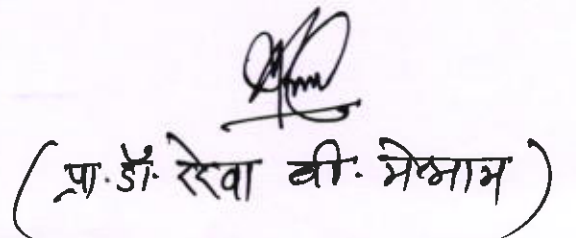 (प्रा. डॉ. रेखा बी. मेश्राम)